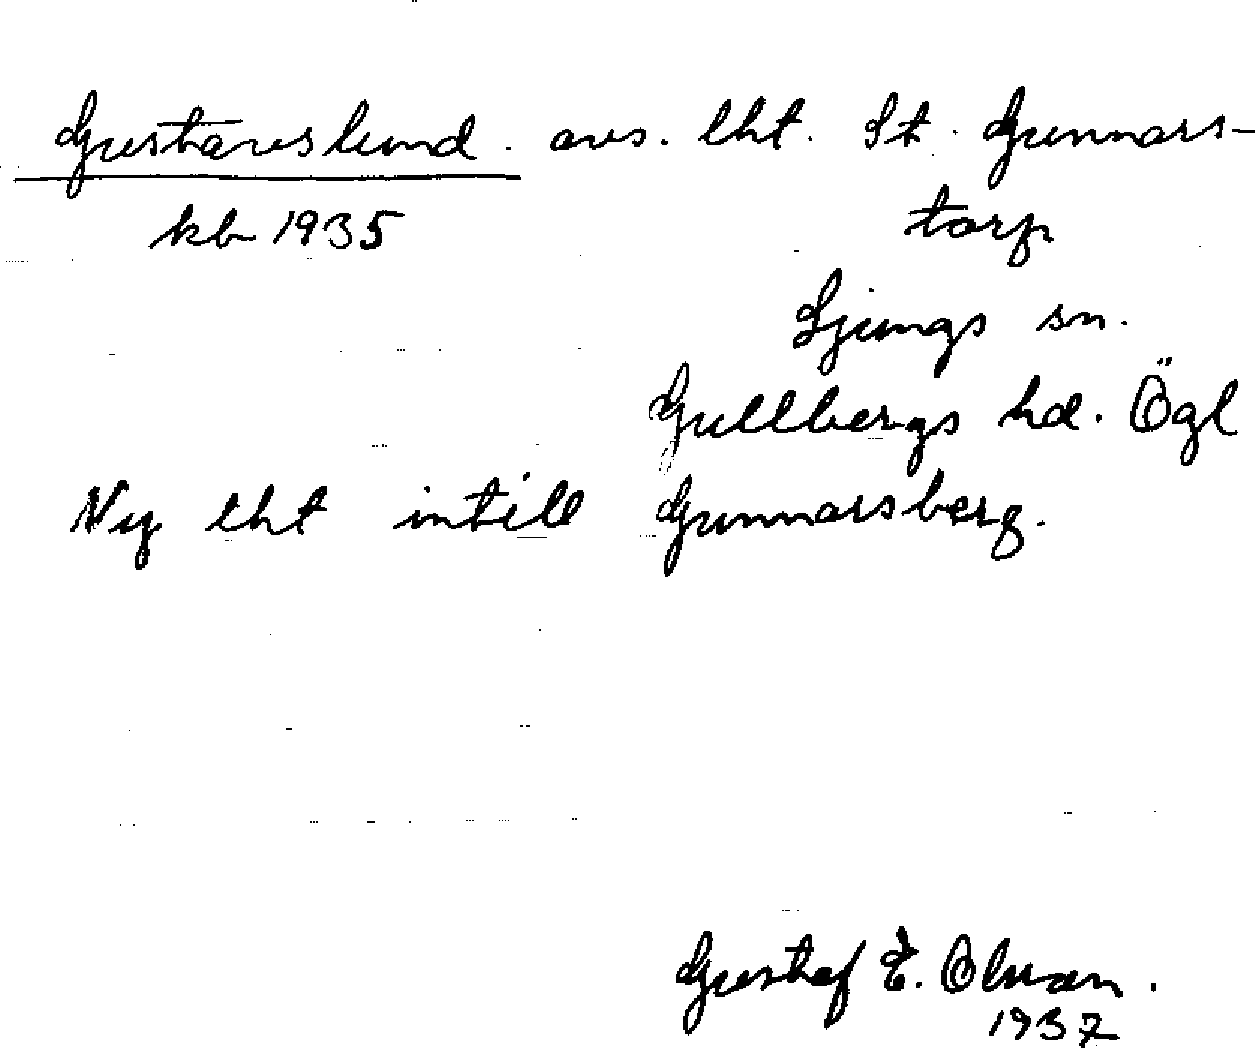 Gustavslund. avs. lht. St. Gunnars-
kb 1935 torp
Ljungs sn.
Gullbergs hd. Ögl
Ny lht intill Gunnarsberg.
Gustaf E. Olsson.
1937